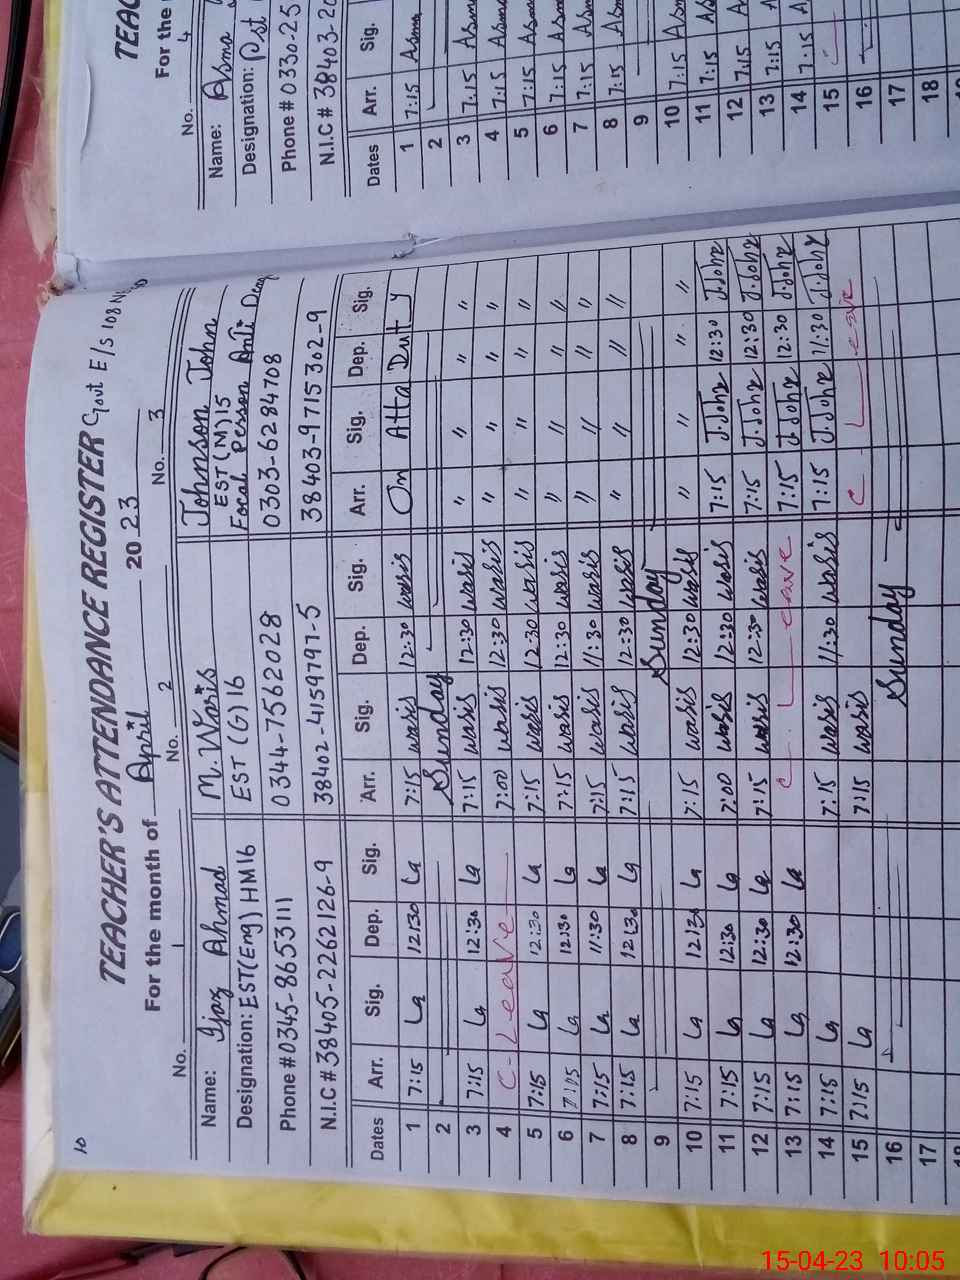 10
TEACHER'S ATTENDANCE REGISTER Govt E/S 108 N
For the month of April 2023
No. 1 No. 2 No. 3
Name: Ijaz Ahmad M. Waris Johnson John
Designation: EST(Eng) HM16 EST (G) 16 EST(M)15 Focal Person Anti Deng
Phone # 0345-8653111 0344-7562028 0303-6284708
N.I.C # 38405-2262126-9 38402-4159797-5 38403-9715302-9
Dates Arr. Sig. Dep. Sig. Arr. Sig. Dep. Sig. Arr. Sig. Dep. Sig.
1 7:15 La 12:30 La 7:15 waris 12:30 waris On Atta Duty
2 Sunday
3 7:15 La 12:30 La 7:15 waris 12:30 waris " " " "
4 C-Leave 7:00 waris 12:30 waris " " " "
5 7:15 La 12:30 La 7:15 waris 12:30 waris " " " "
6 7:15 La 12:30 La 7:15 waris 12:30 waris " " " "
7 7:15 La 11:30 La 7:15 waris 11:30 waris " " " "
8 7:15 La 12:30 La 7:15 waris 12:30 waris " " " "
9 Sunday
10 7:15 La 12:30 La 7:15 waris 12:30 waris " " " "
11 7:15 La 12:30 La 7:00 waris 12:30 waris 7:15 J.John 12:30 J.John
12 7:15 La 12:30 La 7:15 waris 12:30 waris 7:15 J.John 12:30 J.John
13 7:15 La 12:30 La C. Leave 7:15 J.John 12:30 J.John
14 7:15 La 7:15 waris 11:30 waris 7:15 J.John 11:30 J.John
15 7:15 La 7:15 waris C Leave
16 Sunday
17
18
TEAC
For the
No. 4
Name: Asma
Designation: Pst
Phone # 0330-25
N.I.C # 38403-20
Dates Arr. Sig.
1 7:15 Asma
2
3 7:15 Asm
4 7:15 Asm
5 7:15 Asm
6 7:15 Asm
7 7:15 Asm
8 7:15 Asm
9
10 7:15 Asm
11 7:15 As
12 7:15 A
13 7:15 A
14 7:15 A
15
16
17
18
15-04-23 10:05